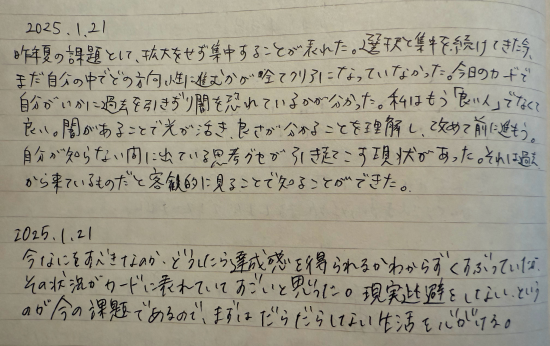 2025.1.21
昨年夏の課題として、拡大をせず集中することが表れた。選択と集中を続けてきた今、
まだ自分の中でどの方向性に進むかが全てクリアになっていなかった。今日のカードで
自分がいかに過去を引きずり闇を恐れているかが分かった。私はもう「良い人」でなくて
良い。闇があることで光が活き、良さが分かることを理解し、改めて前に進もう。
自分が知らない間に出ている思考グセが引き起こす現状があった。それは過去
から来ているものだと客観的に見ることで知ることができた。
2025.1.21
今なにをすべきなのか、どうしたら達成感を得られるかわからずくすぶっていたが、
その状況がカードに表れていてすごいと思った。現実逃避をしない、という
のが今の課題であるので、まずはだらだらしない生活を心がける。